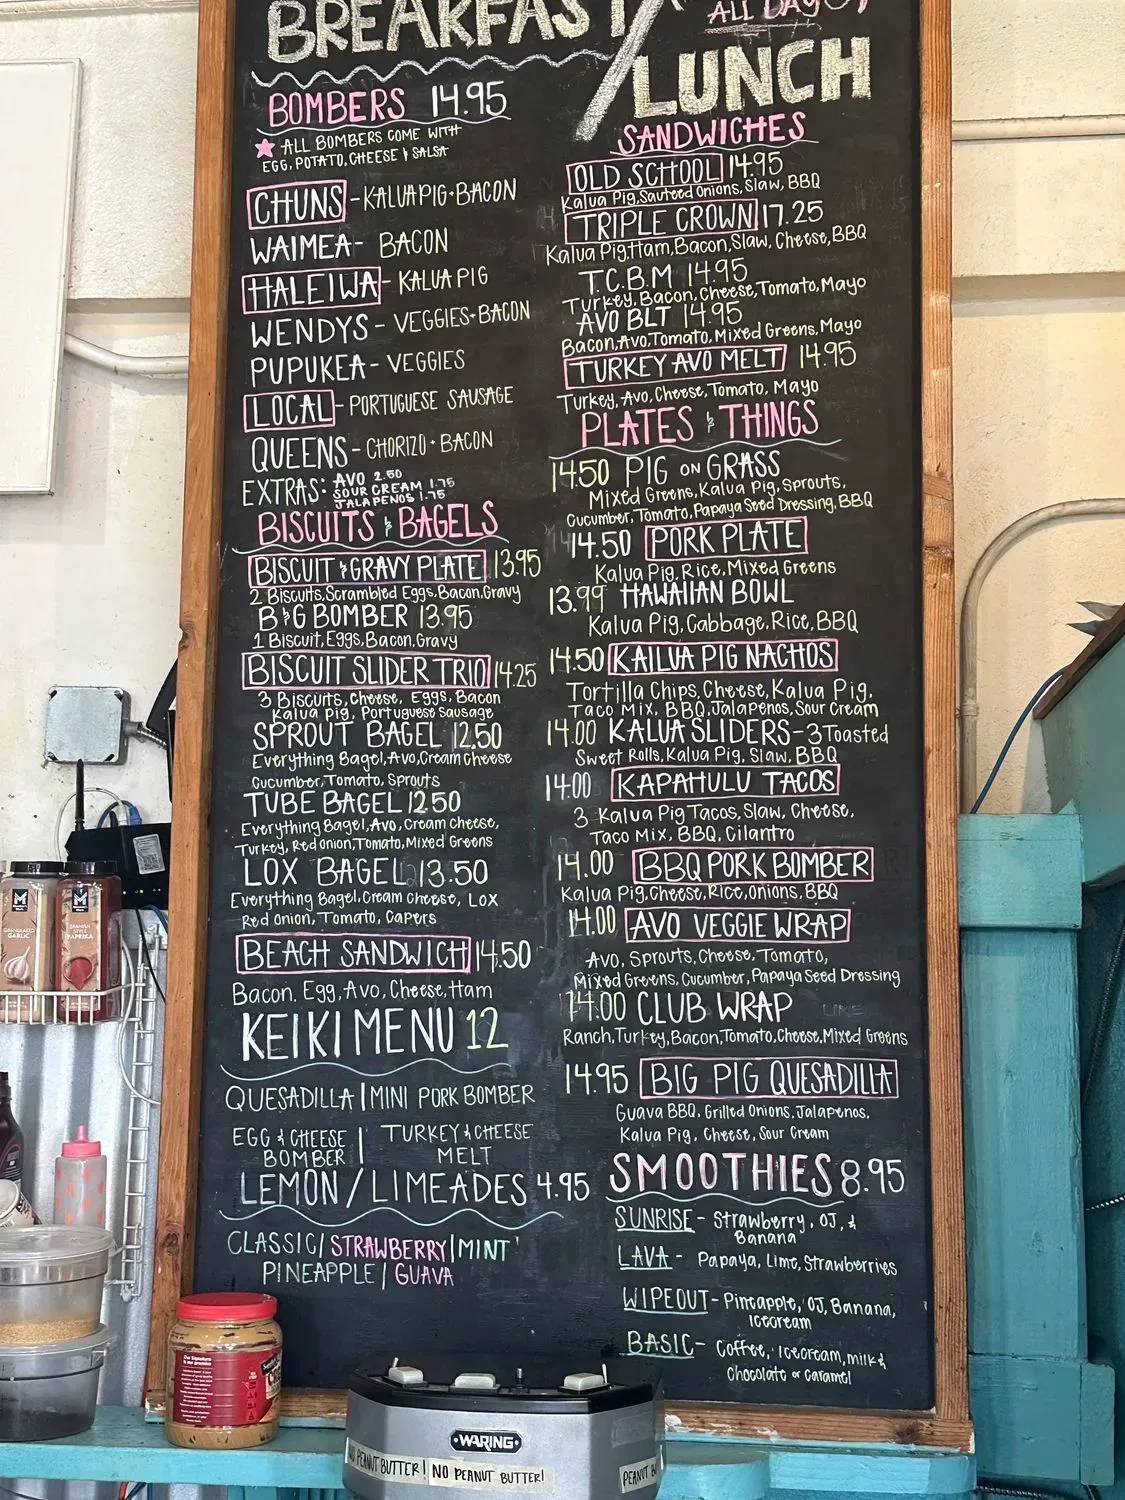 BREAKFAST/
ALL DAY
LUNCH
BOMBERS 14.95
ALL BOMBERS COME WITH
EGG, POTATO, CHEESE & SALSA
CHUNS - KALUA PIG + BACON
WAIMEA - BACON
HALEIWA - KALUA PIG
WENDYS - VEGGIES + BACON
PUPUKEA - VEGGIES
LOCAL - PORTUGUESE SAUSAGE
QUEENS - CHORIZO + BACON
EXTRAS: AVO 2.50
SOUR CREAM 1.75
JALAPENOS 1.75
BISCUITS & BAGELS
BISCUIT & GRAVY PLATE 13.95
2 Biscuits, Scrambled Eggs, Bacon, Gravy
B&G BOMBER 13.95
1 Biscuit, Eggs, Bacon, Gravy
BISCUIT SLIDER TRIO 14.25
3 Biscuits, Cheese, Eggs, Bacon
Kalua Pig, Portuguese Sausage
SPROUT BAGEL 12.50
Everything Bagel, Avo, Cream Cheese
Cucumber, Tomato, Sprouts
TUBE BAGEL 12.50
Everything Bagel, Avo, Cream Cheese,
Turkey, Red onion, Tomato, Mixed Greens
LOX BAGEL 13.50
Everything Bagel, Cream Cheese, Lox
Red Onion, Tomato, Capers
BEACH SANDWICH 14.50
Bacon, Egg, Avo, Cheese, Ham
KEIKI MENU 12
QUESADILLA | MINI PORK BOMBER
EGG & CHEESE BOMBER | TURKEY & CHEESE MELT
LEMON/LIMEADES 4.95
CLASSIC | STRAWBERRY | MINT
PINEAPPLE | GUAVA
SANDWICHES
OLD SCHOOL 14.95
Kalua Pig, Sauteed Onions, Slaw, BBQ
TRIPLE CROWN 17.25
Kalua Pig, Ham, Bacon, Slaw, Cheese, BBQ
T.C.B.M 14.95
Turkey, Bacon, Cheese, Tomato, Mayo
AVO BLT 14.95
Bacon, Avo, Tomato, Mixed Greens, Mayo
TURKEY AVO MELT 14.95
Turkey, Avo, Cheese, Tomato, Mayo
PLATES & THINGS
14.50 PIG ON GRASS
Mixed Greens, Kalua Pig, Sprouts,
Cucumber, Tomato, Papaya Seed Dressing, BBQ
14.50 PORK PLATE
Kalua Pig, Rice, Mixed Greens
13.99 HAWAIIAN BOWL
Kalua Pig, Cabbage, Rice, BBQ
14.50 KAILUA PIG NACHOS
Tortilla Chips, Cheese, Kalua Pig,
Taco Mix, BBQ, Jalapenos, Sour Cream
14.00 KALUA SLIDERS - 3 Toasted
Sweet Rolls, Kalua Pig, Slaw, BBQ
14.00 KAPAHULU TACOS
3 Kalua Pig Tacos, Slaw, Cheese,
Taco Mix, BBQ, Cilantro
14.00 BBQ PORK BOMBER
Kalua Pig, Cheese, Rice, Onions, BBQ
14.00 AVO VEGGIE WRAP
Avo, Sprouts, Cheese, Tomato,
Mixed Greens, Cucumber, Papaya Seed Dressing
14.00 CLUB WRAP
Ranch, Turkey, Bacon, Tomato, Cheese, Mixed Greens
14.95 BIG PIG QUESADILLA
Guava BBQ, Grilled Onions, Jalapenos,
Kalua Pig, Cheese, Sour Cream
SMOOTHIES 8.95
SUNRISE - Strawberry, OJ, &
Banana
LAVA - Papaya, Lime, Strawberries
WIPEOUT - Pineapple, OJ, Banana,
Icecream
BASIC - Coffee, Icecream, milk &
Chocolate or Caramel
GRANULATED
GARLIC
SPANISH
STYLE
PAPRIKA
WARING
PEANUT BUTTER! NO PEANUT BUTTER!
PEANUT